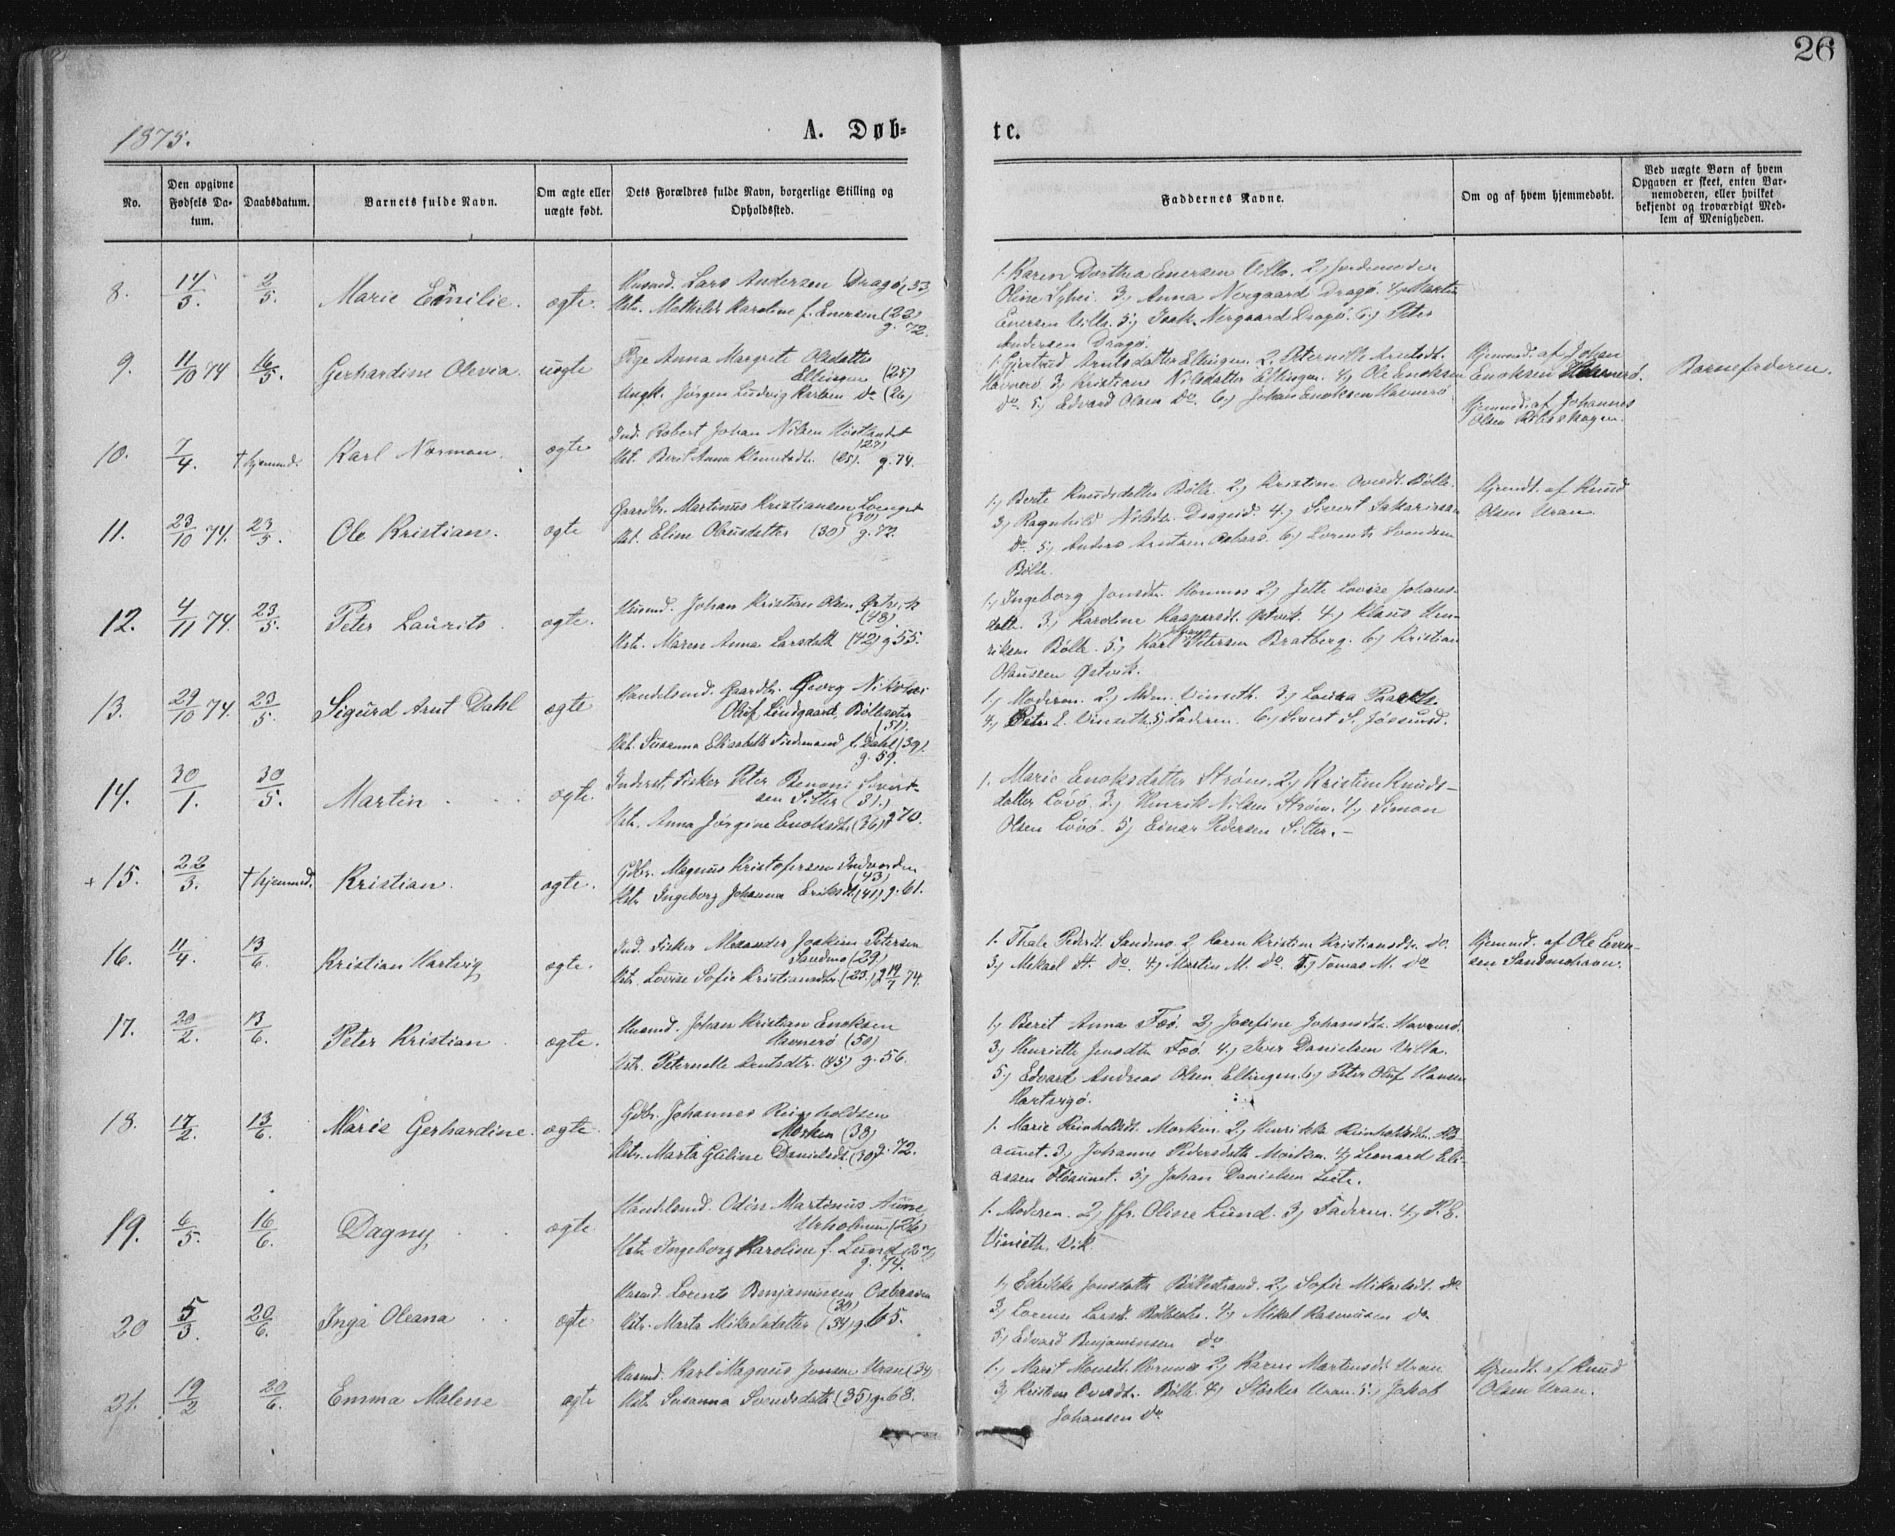 26
1875.
A. Døb-
te.
No.
Den opgivne
Fødsels Da-
tum.
Daabsdatum.
Barnets fulde Navn.
Om ægte eller
uægte født.
Dets Forældres fulde Navn, borgerlige Stilling og
Opholdssted.
Faddernes Navne.
Om og af hvem hjemmedøbt.
Ved uægte Børn af hvem
Opgaven er skeet, enten Bar-
nemoderen, eller hvilket
bekjendt og troværdigt Med-
lem af Menigheden.
8. 14/3. 2/5. Marie Emilie. ægte. Husmd. Lars Andersen Dragø (33)
Hst. Mathilde Karoline f. Enersen (23)
g. 72.
1. Karen Dorthea Enersen Villa. 2, Jordemoder
Oline 3, Anna Nergaard Dragø. 4, Martin
Enersen Villa. 5, Isak Nergaard Dragø. 6, Peter
Andersen Dragø.
9. 11/10 74 16/5. Gerhardine Olivia. uægte Pige Anna Margrete Olsdatter
Ellingen (25)
Ungk. Jørgen Ludvig Karlsen do (26)
1. Gjertrud Arntsdatter Ellingen. 2, Peternille Arntsdt.
Havnerø 3, Kristiane Nilsdatter Ellingen. 4, Ole Enoksen
do. 5, Edvard Olsen do. 6, Johan Enoksen Havnerø
Hjemmd. af Johan
Enoksen Havnerø.
Barnefaderen.
10. 7/4. † hjemmd. Karl Norman. ægte Ind. Robert Johan Nilsen
(27)
Hst. Berit Anna (25). g. 74.
Hjemmd. af Johannes
Olsen
11. 23/10 74. 23/5. Ole Kristian. ægte Gaardbr. Martinus Kristiansen
(30)
Hst. Eline Olausdatter (30) g. 72.
1, Berte Knudsdatter Bølle. 2, Kristine Bølle.
3, Ragnhild Nilsdt. Drageid. 4, Sivert Sakariassen
do. 5, Anders Arntsen 6, Lorents Svendsen
Bølle.
Hjemdt. af Knud
Olsen Uran.
12. 4/11 74. 23/5. Peter Laurits. ægte. Husmd. Johan Kristian Olsen Østvik
(48).
Hst. Maren Anna Larsdatt. (42) g. 55.
1, Ingeborg Jonsdt. 2, Jette Lovise Johans-
datt. 3, Karoline Kaspersdt. Østvik. 4, Klaus Hen-
riksen Bølle. 5, Karl Petersen Bratberg. 6, Kristian
Olaussen Østvik.
13. 29/10 74. 23/5. Sigurd Arnt Dahl ægte Handelsmd. Gaardbr. Georg Nikolai
Oluf Lindgaard, Bølleseter
(51).
Hst. Susanna Elisabeth Tiedemand f. Dahl (39).
g. 59.
1, Moderen. 2, Mdm. Vinseth. 3, Lovisa
4, Peter E. Vinseth. 5, Faderen. 6, Sivert S. Jøssund.
14. 30/1. 30/5. Martin. ægte. Inderst, Fisker Peter Benoni Sivert-
sen Sitter (31.)
Hst. Anna Jørgine Enoksdt. (36) g. 70.
1. Marie Enoksdatter Strøm. 2, Kristen Knuds-
datter Løvø. 3, Henrik Nilsen Strøm. 4, Simon
Olsen Løvø. 5, Einar Pedersen Sitter.
+ 15. 22/3. † hjemmd. Kristian. ægte. Gdbr. Magnus Kristofersen Indvorden
(43)
Hst. Ingeborg Johanna Eriksdt. (41) g. 61.
16. 4/4. 13/6. Kristian Hartvig ægte. Ind. Fisker Alexander Joakim Petersen
Sandmo (29)
Hst. Lovise Sofie Kristiansdtr. (23) g. 19/7 74.
1. Thale Pedersdt. Sandmo. 2, Karen Kristine Kristiansdt. do.
3, Mikael A. do. 4, Martin M. do. 5, Tomas M. do
Hjemmd. af Ole Even-
sen Sandmohavn.
17. 20/2. 13/6. Peter Kristian. ægte. Husmd. Johan Kristian Enoksen
Havnerø (50)
Hst. Peternelle Arntsdtr. (45) g. 56.
1, Berit Anna Foø. 2, Josefine Johansdtr. Havnerø.
3, Henriette Jensdt. Foø. 4, Iver Danielsen Villa.
5, Edvard Andreas Olsen Ellingen. 6, Peter Oluf Hansen
18. 17/2. 13/6. Marie Gerhardine. ægte. Gdbr. Johannes Reinholdsen
Morken (38)
Hst. Marta Galine Danielsdt. (30) g. 72.
1. Marie Reinholdsdt. Morken. 2, Henrikke Reinholdsdtr. Flø-
aunet. 3, Johanne Pedersdatt. Morken. 4, Leonard Eli-
assen Fløaunet. 5, Johan Danielsen
19. 6/5. 16/6. Dagny. ægte Handelsmd. Odin Martinus Aune,
Utholmen (26)
Hst. Ingeborg Karoline f. Lund (27)
g. 74.
1. Moderen. 2, Jfr. Oline Lund. 3, Faderen. 4, P. E.
Vinseth, Vik.
20 5/3. 20/6. Inga Oleana ægte Husmd. Lorents Benjaminsen
(39)
Hst. Marta Mikalsdatter (34) g. 65.
1, Edrikke Jonsdatt. Bøllestrand. 2, Sofie Mikalsdt. do
3, Lorense Larsdt. Bølleseter. 4, Mikal Rasmussen do
5, Edvard Benjaminsen do
21. 19/2 20/6. Emma Malene ægte Husmd. Karl Magnus Jonsen Uran (34)
Hst. Susanna Svendsdatt. (35) g. 68.
1, Marit Monsdt. 2, Karen Martinsdt. Uran
3, Kristine Bølle. 4, Uran. 5, Jakob
Johansen do.
Hjemdt. af Knud
Olsen Uran.